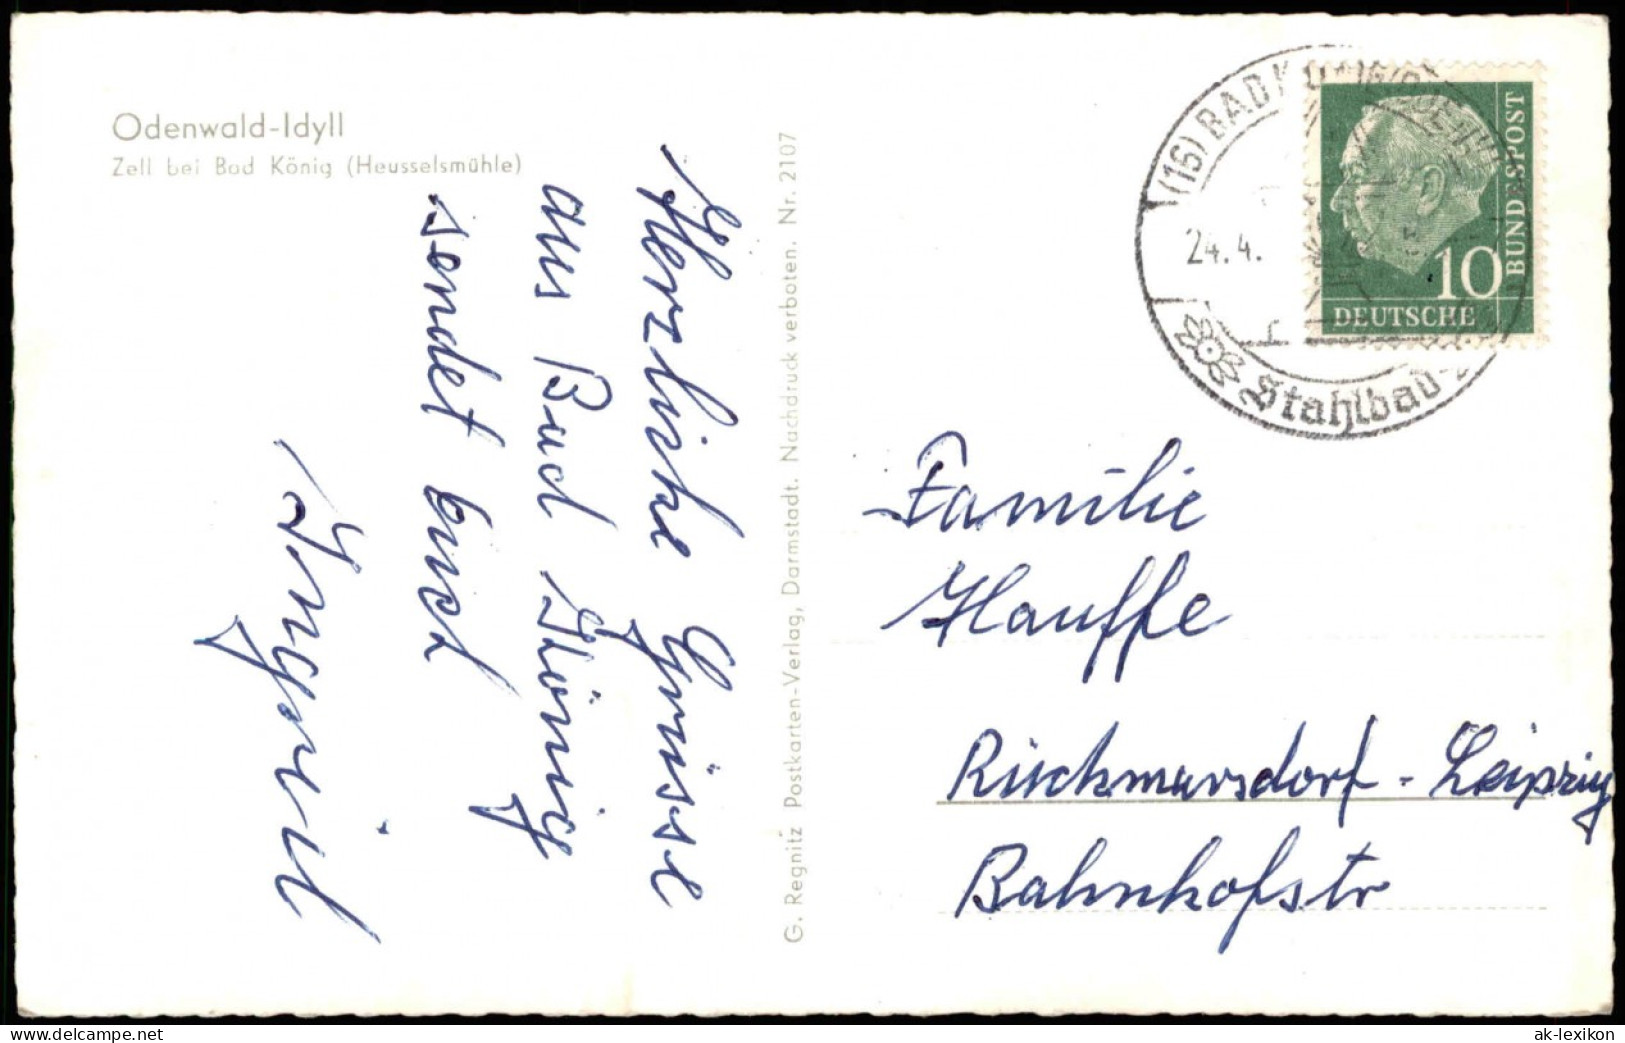 Odenwald-Idyll
Zell bei Bad König (Heusselsmühle)
Herzliche Grüsse
aus Bad König
sendet Euch
Ingrid
G. Regnitz Postkarten-Verlag, Darmstadt. Nachdruck verboten. Nr. 2107
(16) BAD
24.4.
Stahlbad-
BUNDESPOST
10
DEUTSCHE
Familie
Hauffe
Rückmarsdorf - Leipzig
Bahnhofstr
www.delcampe.net
ak-lexikon